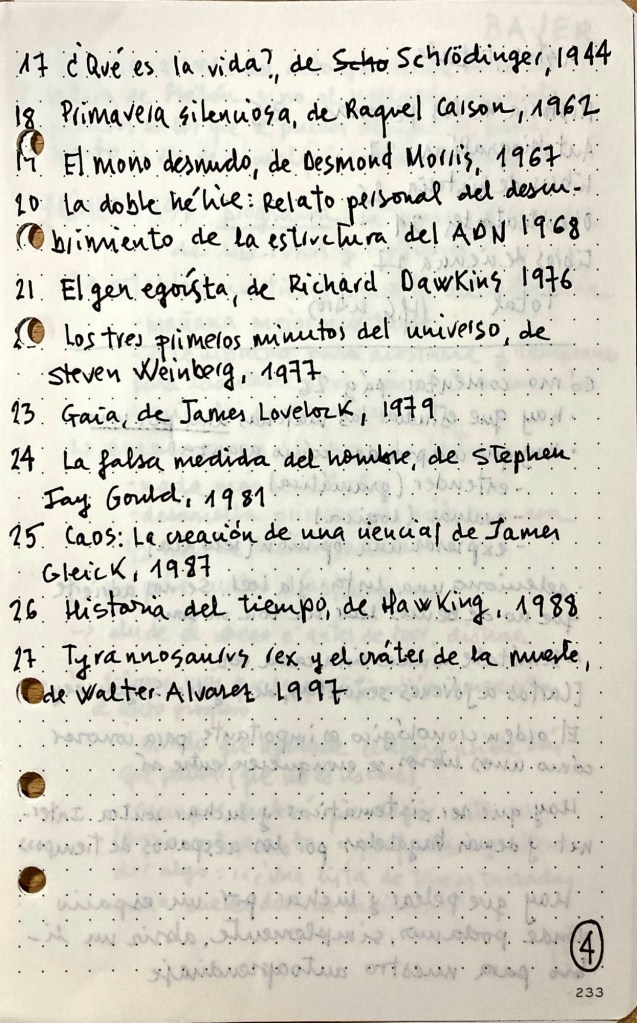 17 ¿Qué es la vida?, de Scho Schrödinger, 1944
18 Primavera silenciosa, de Raquel Carson, 1962
19 El mono desnudo, de Desmond Morris, 1967
20 La doble hélice: Relato personal del descu-
brimiento de la estructura del ADN 1968
21 El gen egoísta, de Richard Dawkins 1976
Los tres primeros minutos del universo, de
Steven Weinberg, 1977
23 Gaia, de James Lovelock, 1979
24 La falsa medida del hombre, de Stephen
Jay Gould, 1981
25 Caos: La creación de una ciencia, de James
Gleick, 1987
26 Historia del tiempo, de Hawking, 1988
27 Tyrannosaurus rex y el cráter de la muerte,
de Walter Alvarez 1997
4
233